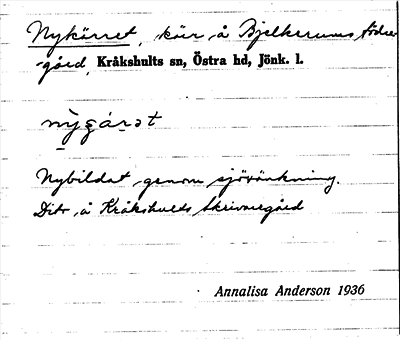 Nykärret, kärr å Bjelkerums södre-
gård, Kråkshults sn, Östra hd, Jönk. l.
Nybildat genom sjösänkning.
Dito å Kråkshults Skrivaregård
Annalisa Anderson 1936